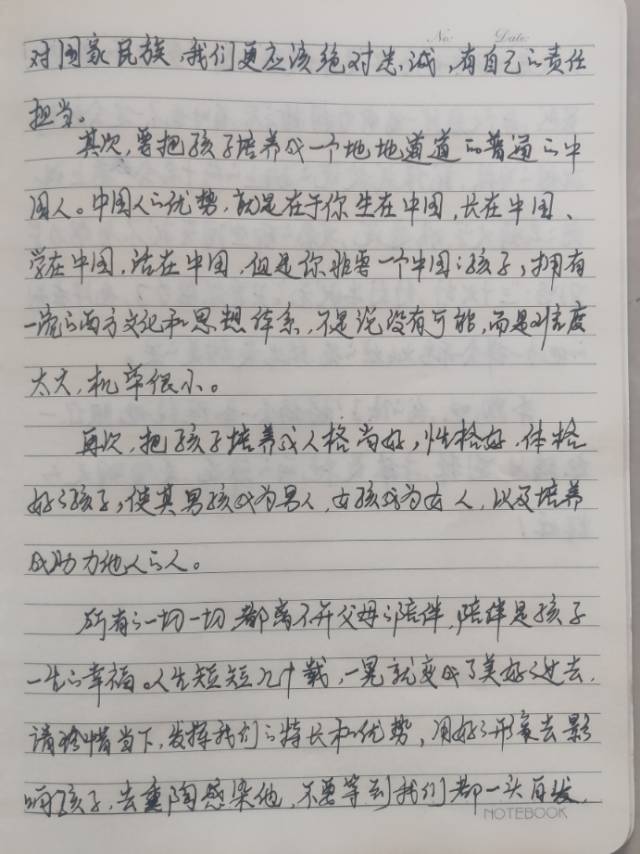 No: Date:
对国家民族,我们更应该绝对忠诚,有自己的责任
担当。
其次,要把孩子培养成一个地地道道的普通的中
国人。中国人的优势,就是在于你生在中国,长在中国、
学在中国,活在中国,但是你非要一个中国的孩子,拥有
一流的西方文化和思想体系,不是说没有可能,而是难度
太大,机率很小。
再次,把孩子培养成人格尚好,性格好,体格
好的孩子,使其男孩成为男人,女孩成为女人,以及培养
成助力他人的人。
所有的一切一切都离不开父母的陪伴,陪伴是孩子
一生的幸福。人生短短几十载,一晃就变成了美好的过去,
请珍惜当下,发挥我们的特长和优势,用好的形象去影
响孩子,去熏陶感染他,不要等到我们都一头白发,
NOTEBOOK